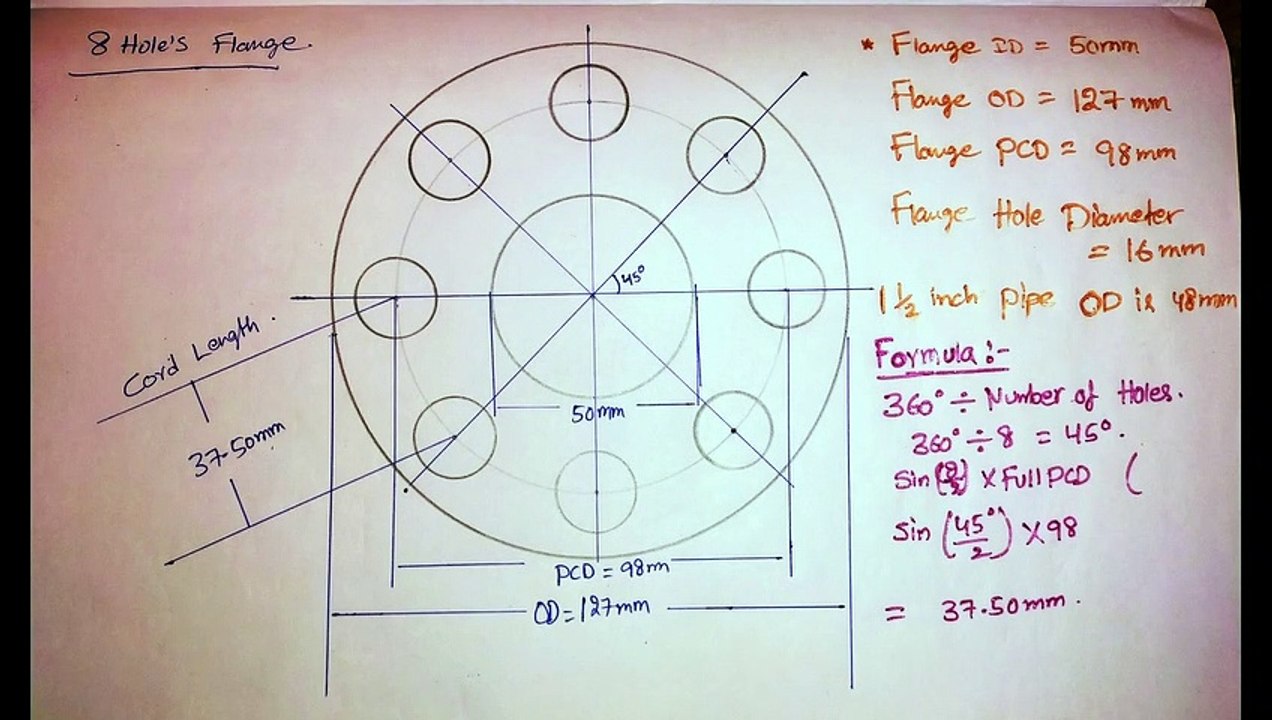 8 Hole's Flange.
* Flange ID = 50mm
Flange OD = 127mm
Flange PCD = 98mm
Flange Hole Diameter
= 16mm
1 1/2 inch Pipe OD is 48mm
Formula :-
360° ÷ Number of Holes.
360° ÷ 8 = 45°.
Sin ( ) × Full PCD (
Sin (45°/2) × 98
= 37.50mm.
45°
Cord Length.
37.50mm
50mm
PCD = 98mm
OD = 127mm